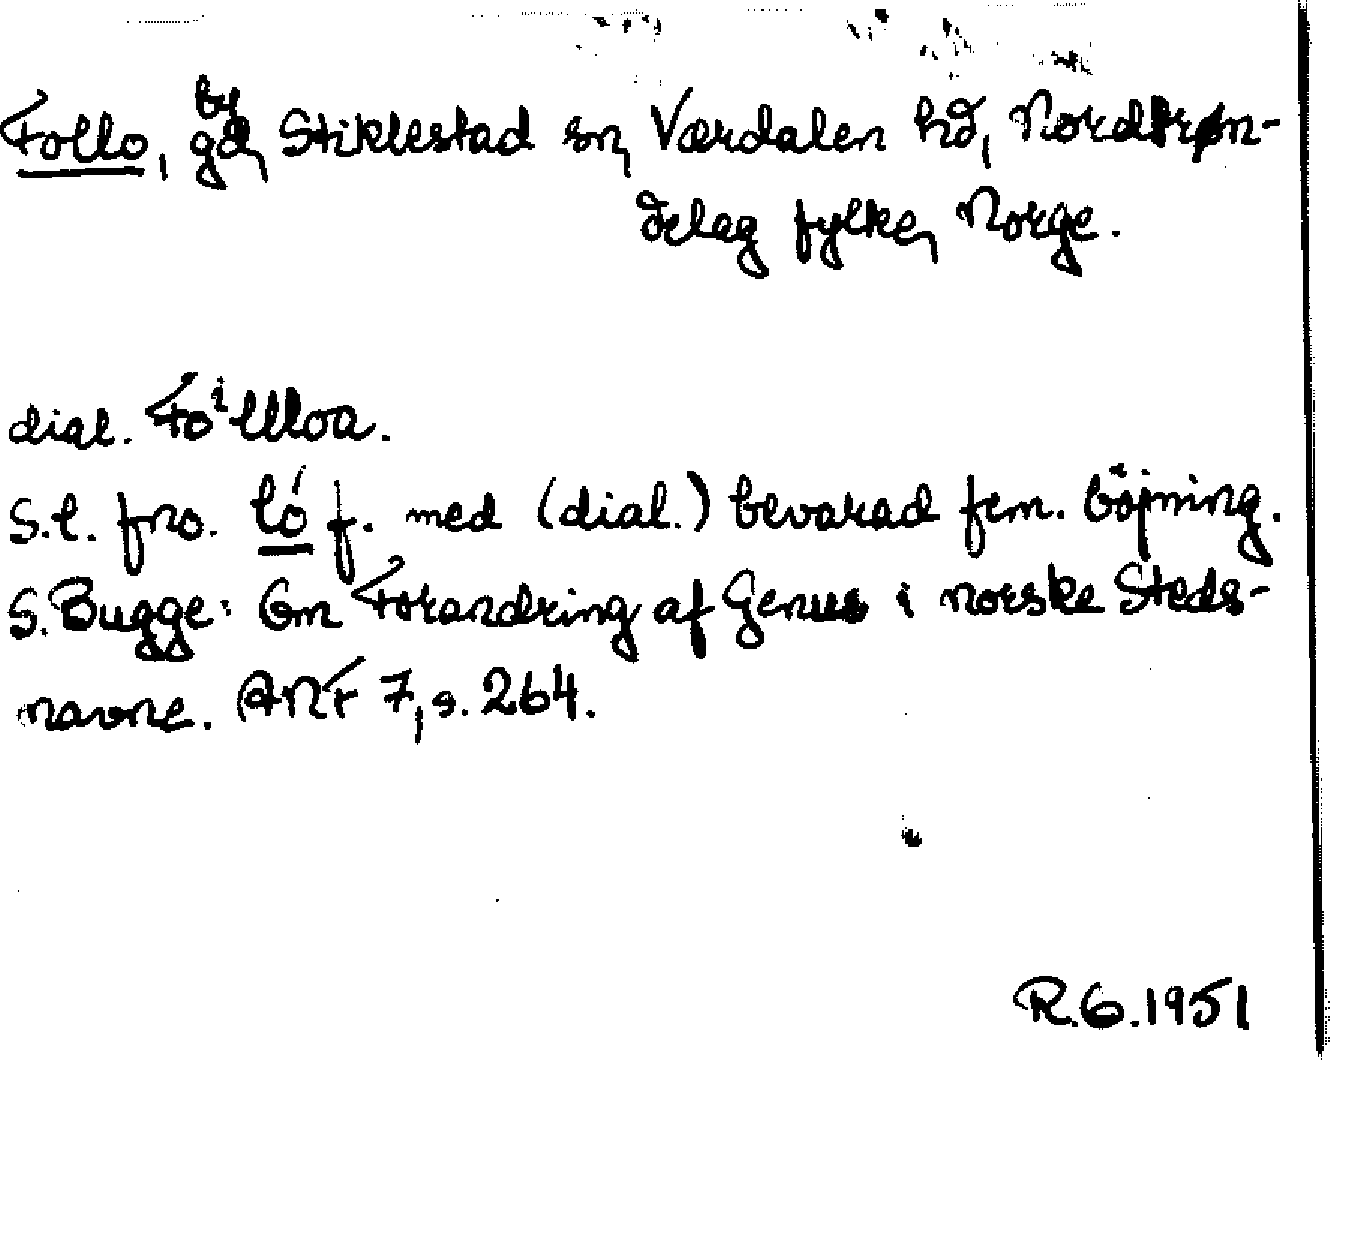 Follo, by gd, Stiklestad sn, Værdalen hd, Nordtrøn-
delag fylke, Norge.
dial. Foⁱllloa.
S.l. fno. ló f. med (dial.) bevarad fem. böjning.
S. Bugge: Om Forandring af Genus i norske Steds-
navne. ANF 7, s. 264.
R.G. 1951